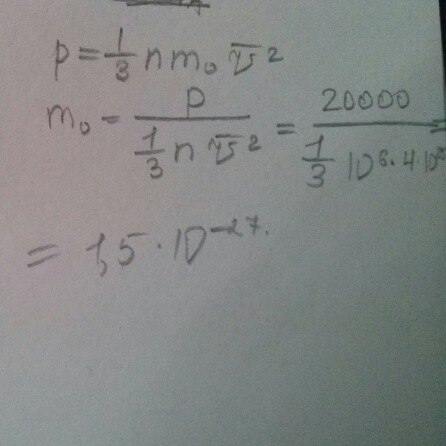 p = 1/3 n m₀ v̅²
m₀ = p / (1/3 n v̅²) = 20000 / (1/3 10⁶·4·10
= 1,5·10⁻²⁷.